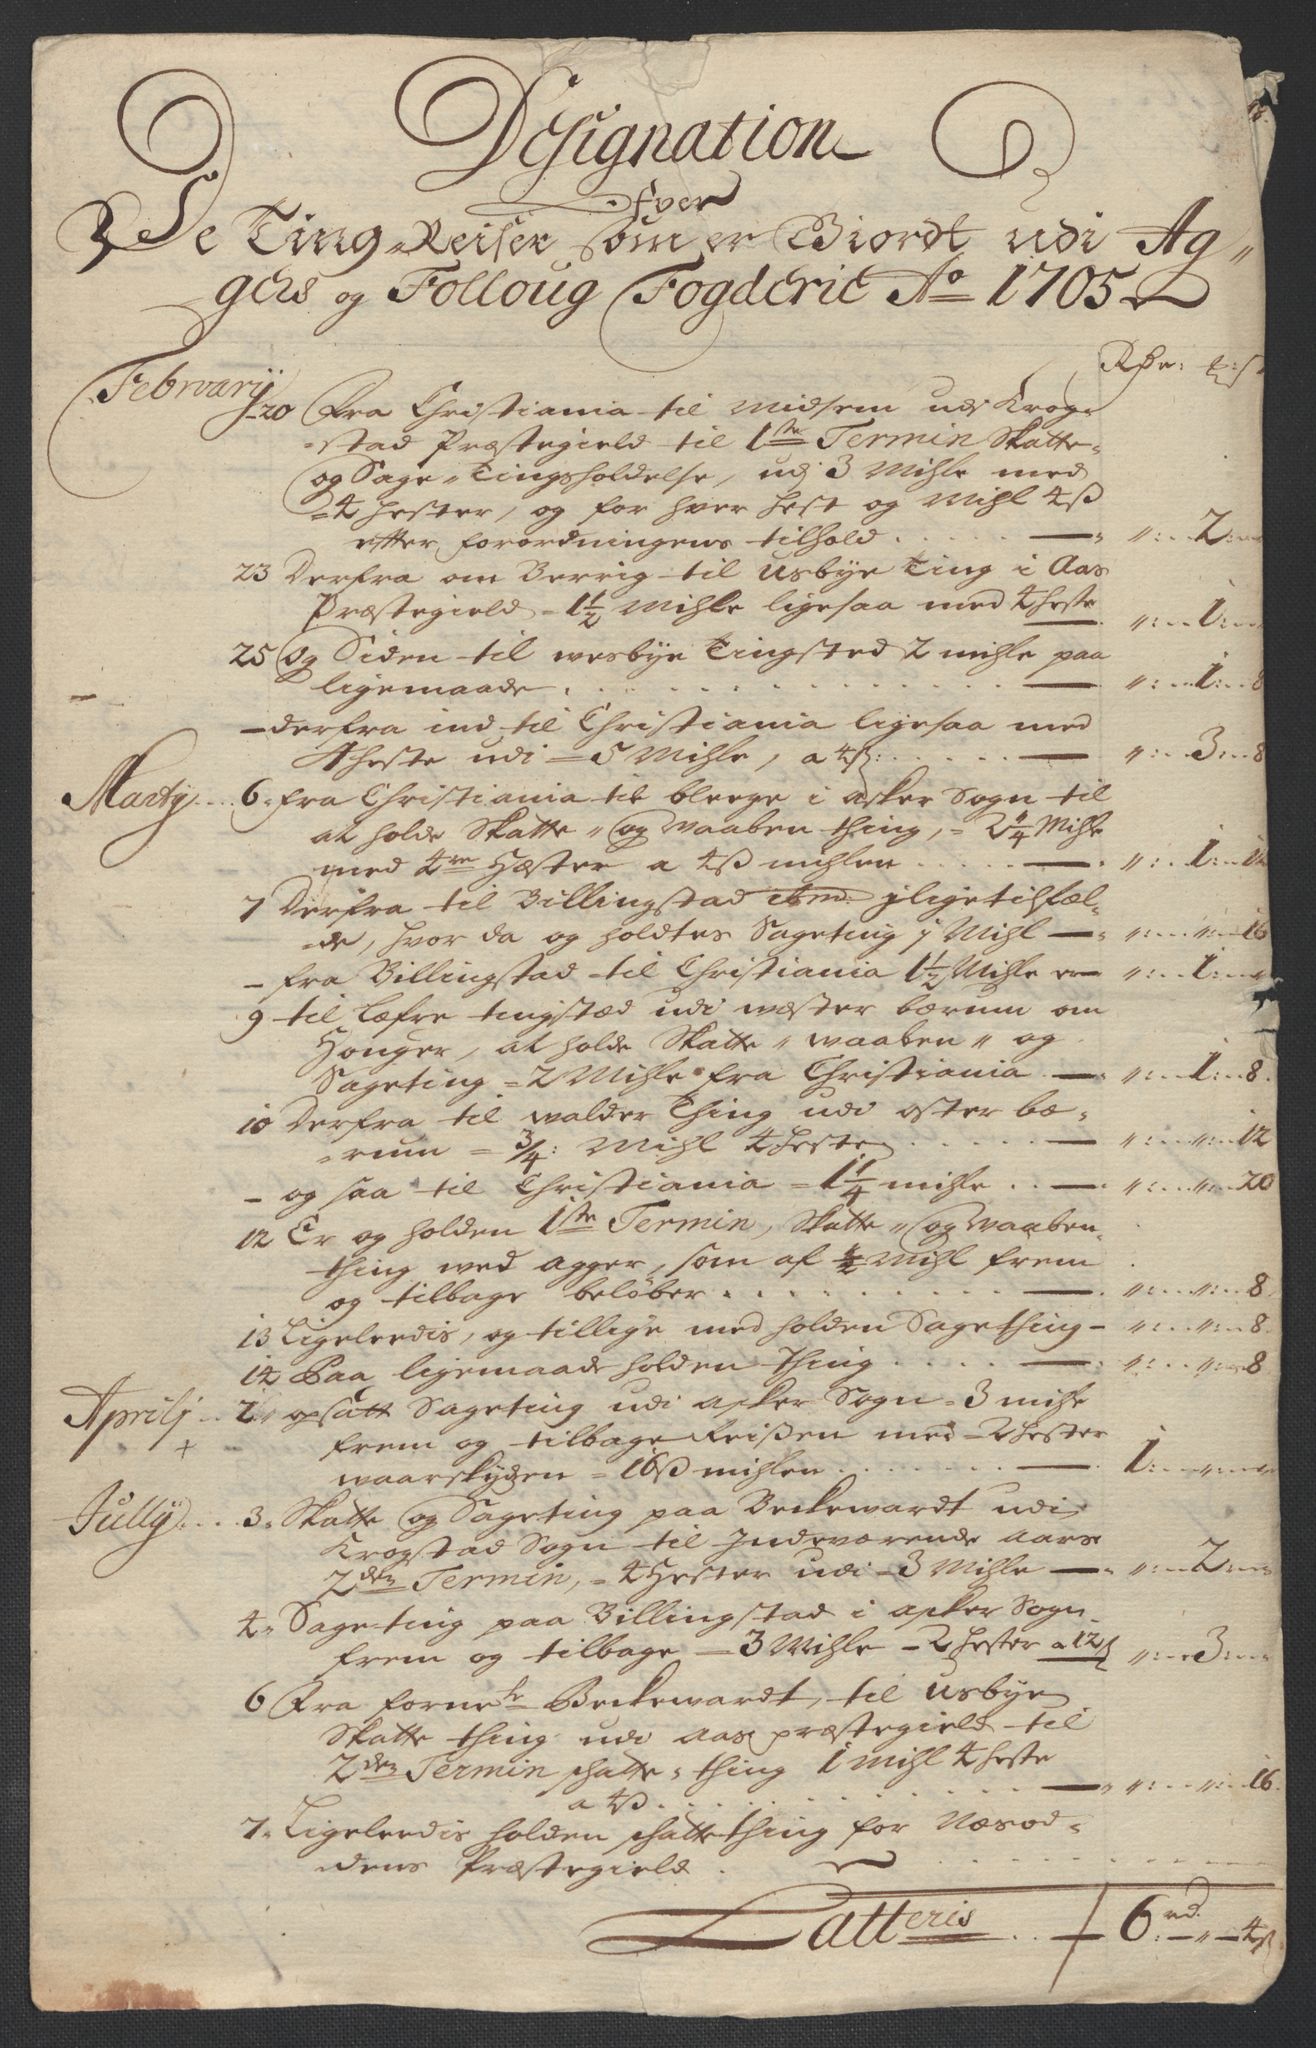 Designation
Ofver
De Ting Reiser som er Giordt udi Ag„
gers og Folloug Fogderie Ao 1705
Rdr: ℔: ß
Februarij 20 Fra Christiania til Midsem udj Krog-
stad Præstegield til 1ste Termin Skatte-
og Sage „ Tingsholdelse, udj 3 Mihle med
4 hester, og for hver hest og Mihl 4 ß
efter forordningens tilhold . . . . „: 2:
23 Derfra om Berrig til Usbye Ting i Aas
Præstegield - 1½ Mihle ligesaa med 4 heste „: 1:
25 Og Siden til wesbye Tingsted 2 mihle paa
ligemaade . . . . „: 1: 8
— derfra ind til Christiania ligesaa med
4 heste udi - 5 Mihle, a 4ß: . . . . „: 3: 8
Martij 6 fra Christiania til blerge i asker Sogn til
at holde Skatte „ og Vaaben thing, - 2¼ Mihle
med 4re Hæster a 4ß mihlen . . . . „: 1:
7 Derfra til Billingstad jligetilfæl-
de, hvor da og holdtes Sageting j Mihl — „: „: 16
— fra Billingstad til Christiania 1½ Mihle er „: 1:
9 til Læfre tingstæd udi wæster bærum om
Honger, at holde Skatte „ waaben „ og
Sageting - 2 Mihle fra Christiania — „: 1: 8
10 Derfra til walder Thing udi oster bæ-
rum - ¾: Mihl 4 heste . . . . „: „: 12
— og saa til Christiania - 1¼ mihle . . — „: „: 20
12 Er og holden 1ste Termin, Skatte „ og Waaben
thing wed agger, som af ½ Mihl frem
og tilbage beløber . . . . „: „: 8
13 Ligeleedis, og tillige med holden Sagething - „: „: 8
14 Paa ligemaade holden thing . . . . „: „: 8
Aprilj 2 opsatt Sageting udi asker Sogn - 3 mihle
frem og tilbage Reißen med - 2 hester
waarskyden - 16ß mihlen . . . . 1: „:
Jullij 3 Skatte og Sageting paa Beckewardt udi
Krogstad Sogn til Indeværende aars
2den Termin, - 4 Hester udi - 3 Mihle — „: 2:
4 Sageting paa Billingstad i asker Sogn
frem og tilbage - 3 Mihle - 2 hester a 12ß „: 3:
6 Fra fornete Beckewardt, til Usbye
Skatte thing udi Aas præstegield til
2den Termin schatte „ thing 1 mihl 4 heste
a 4ß . . . . „: „: 16
7 Ligeleedis holden schattething for Næsod-
dens Præstegield .
Latteris . . — 6 rd: „ 4ß